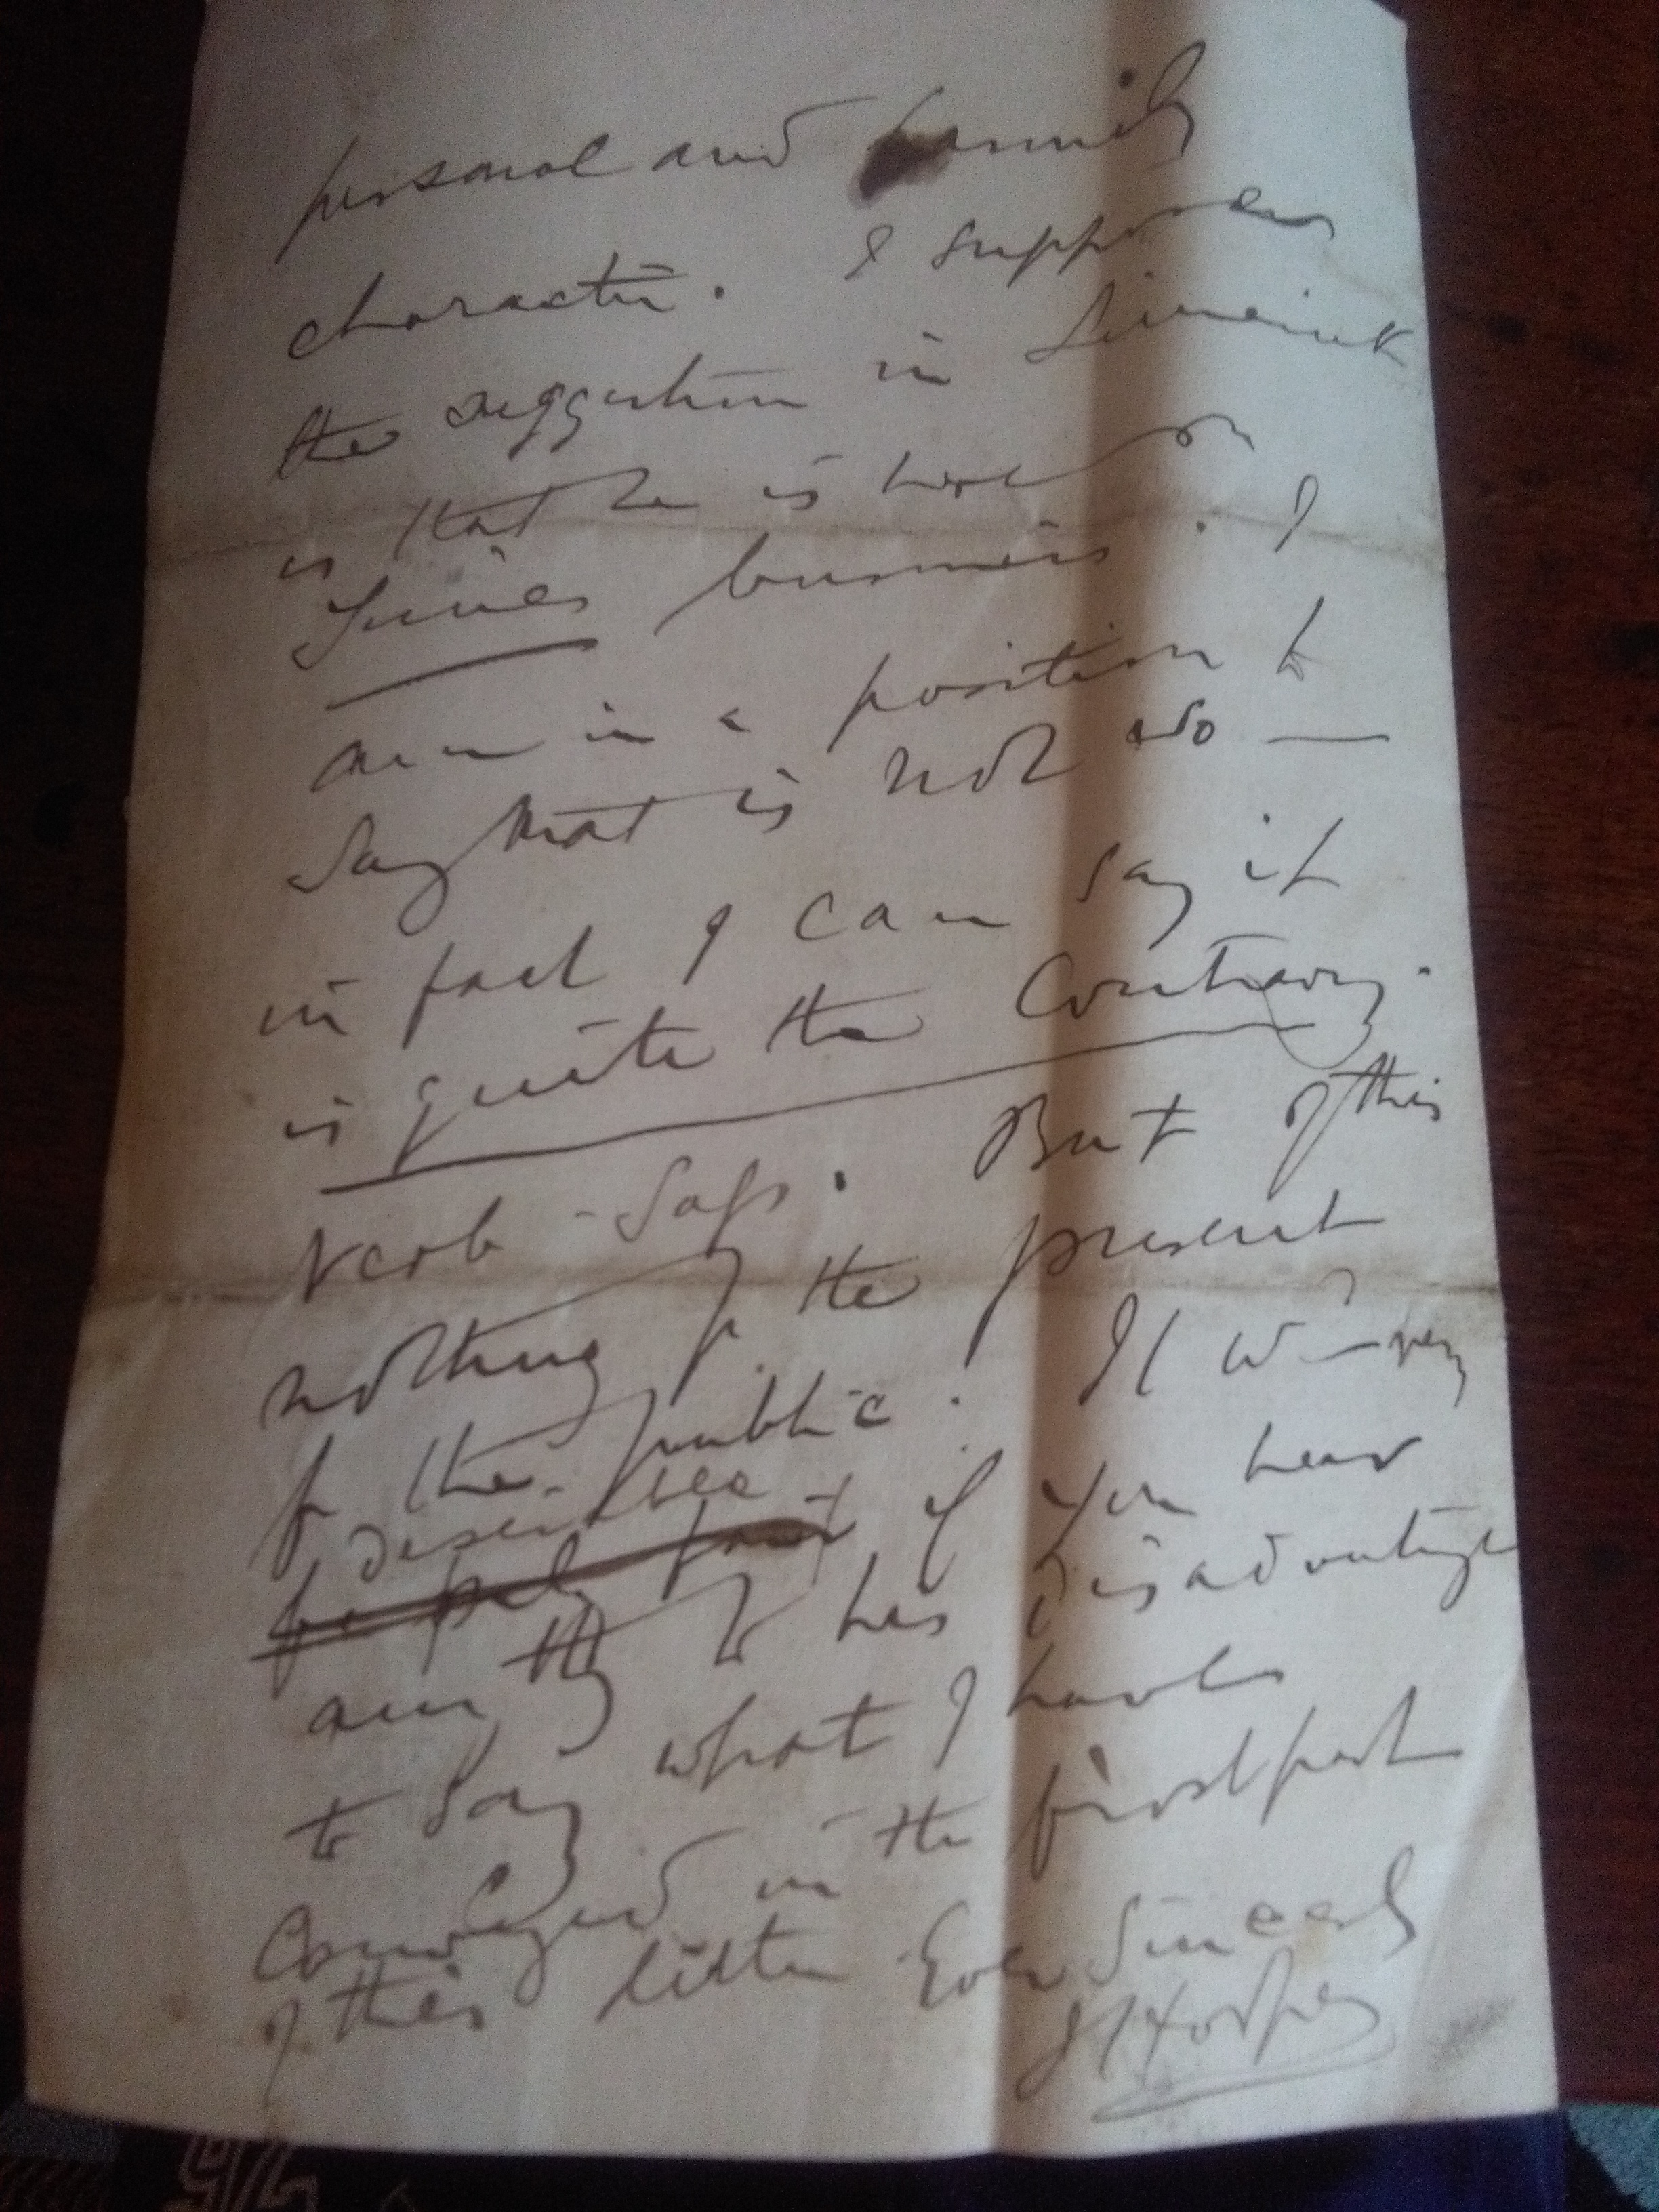 personal and family
character. I suppose
the suggestion in Limerick
is that he is here on
Times business. I
am in a position to
say that is not so —
in fact I can say it
is quite the contrary.
Verb. Sap. But of this
nothing for the present
for the public. It w
describe
if you hear
any thing to his disadvantage
to say what I have
conveyed in the first part
of this letter Ever Sincerely